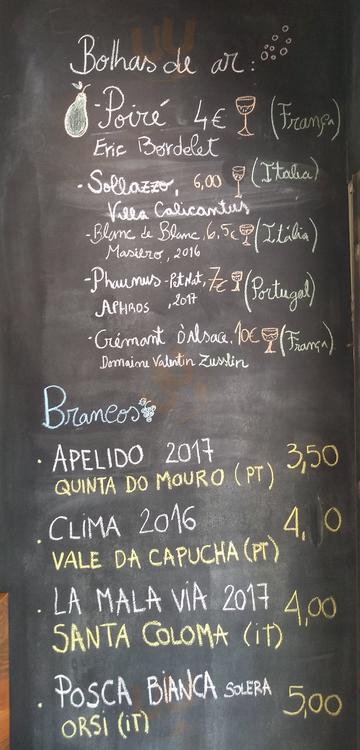 Bolhas de ar:
- Poiré 4€ (França)
Eric Bordelet
- Sollazzo, 6,00 (Italia)
Villa Calicantus
- Blanc de Blanc, 6,5€ (Itália)
Masiero, 2016
- Phaunus - Pet Nat, 7€ (Portugal)
APHROS , 2017
- Crémant d'Alsace, 10€ (França)
Domaine Valentin Zusslin
Brancos
. APELIDO 2017 3,50
QUINTA DO MOURO (PT)
. CLIMA 2016
VALE DA CAPUCHA (PT)
. LA MALA VIA 2017 4,00
SANTA COLOMA (iT)
. POSCA BiANCA SOLERA 5,00
ORSi (iT)